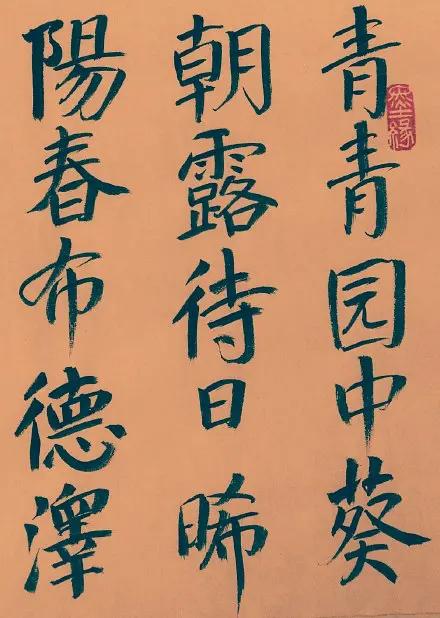 青青园中葵
朝露待日晞
陽春布德澤
墨缘